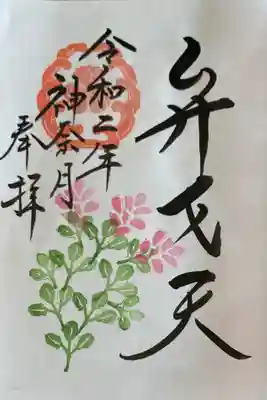 弁才天
令和二年
神奈月
奉拝